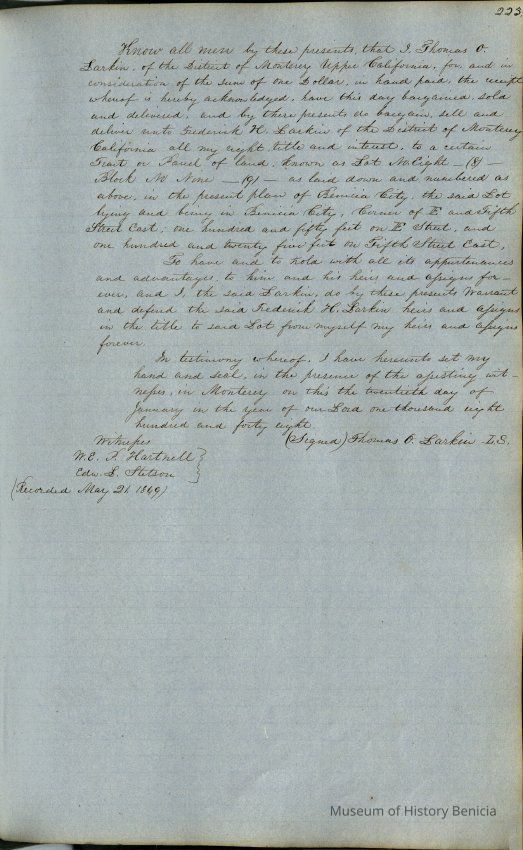 223
Know all men by these presents, that I, Thomas O.
Larkin, of the District of Monterey Upper California, for, and in
consideration of the sum of One Dollar, in hand paid, the receipt
whereof is hereby acknowledged, have this day bargained, sold
and delivered, and by these presents do bargain, sell and
deliver unto Frederick H. Larkin of the District of Monterey
California all my right, title and interest, to a certain
Tract or Parcel of land, known as Lot No Eight — (8) —
Block No Nine — (9) — as laid down and numbered as
above, in the present plan of Benicia City, the said Lot
lying and being in Benicia City, Corner of E and Fifth
Street East, one hundred and fifty feet on E Street, and
one hundred and twenty five feet on Fifth Street East,
To have and to hold with all its appurtenances
and advantages, to him and his heirs and assigns for-
ever, and I, the said Larkin, do by these presents Warrant
and defend the said Frederick H. Larkin heirs and assigns
in the title to said Lot from myself my heirs and assigns
forever.
In testimony whereof, I have hereunto set my
hand and seal, in the presence of the attesting wit-
nesses, in Monterey on this the twentieth day of
January in the year of our Lord one thousand eight
hundred and forty eight.
Witnesses (Signed) Thomas O. Larkin L.S.
W. E. P. Hartnell }
Edw. L. Stetson }
(Recorded May 21. 1849)
Museum of History Benicia